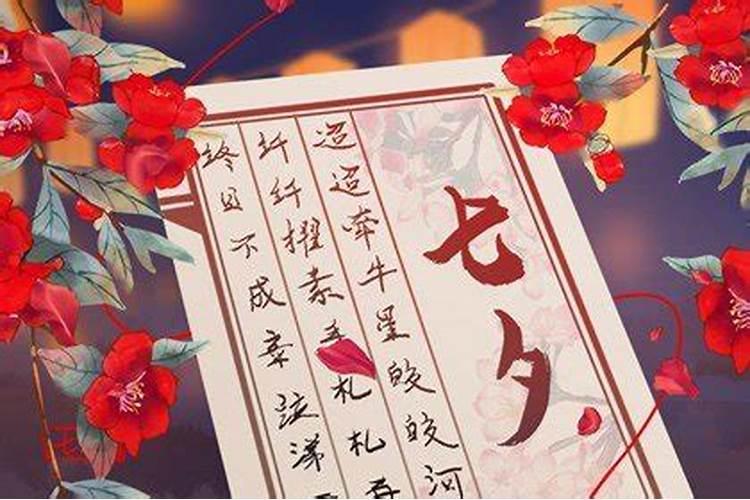 七夕
迢迢牵牛星皎皎河
纤纤擢素手札札弄
终日不成章泣涕